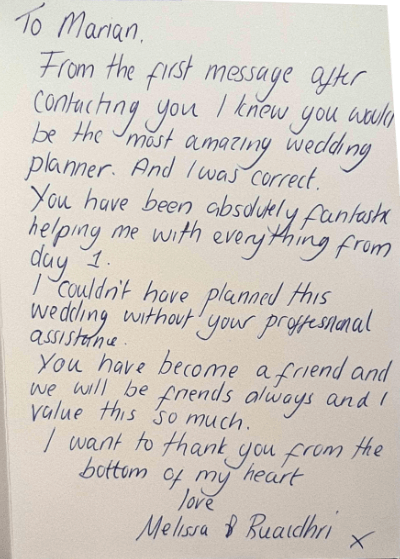 To Marian,
From the first message after
contacting you I knew you would
be the most amazing wedding
planner. And I was correct.
You have been absolutely fantastic
helping me with everything from
day 1.
I couldn't have planned this
wedding without your proffessnal
assistance.
You have become a friend and
we will be friends always and I
value this so much.
I want to thank you from the
bottom of my heart
love
Melissa & Ruaidhri x